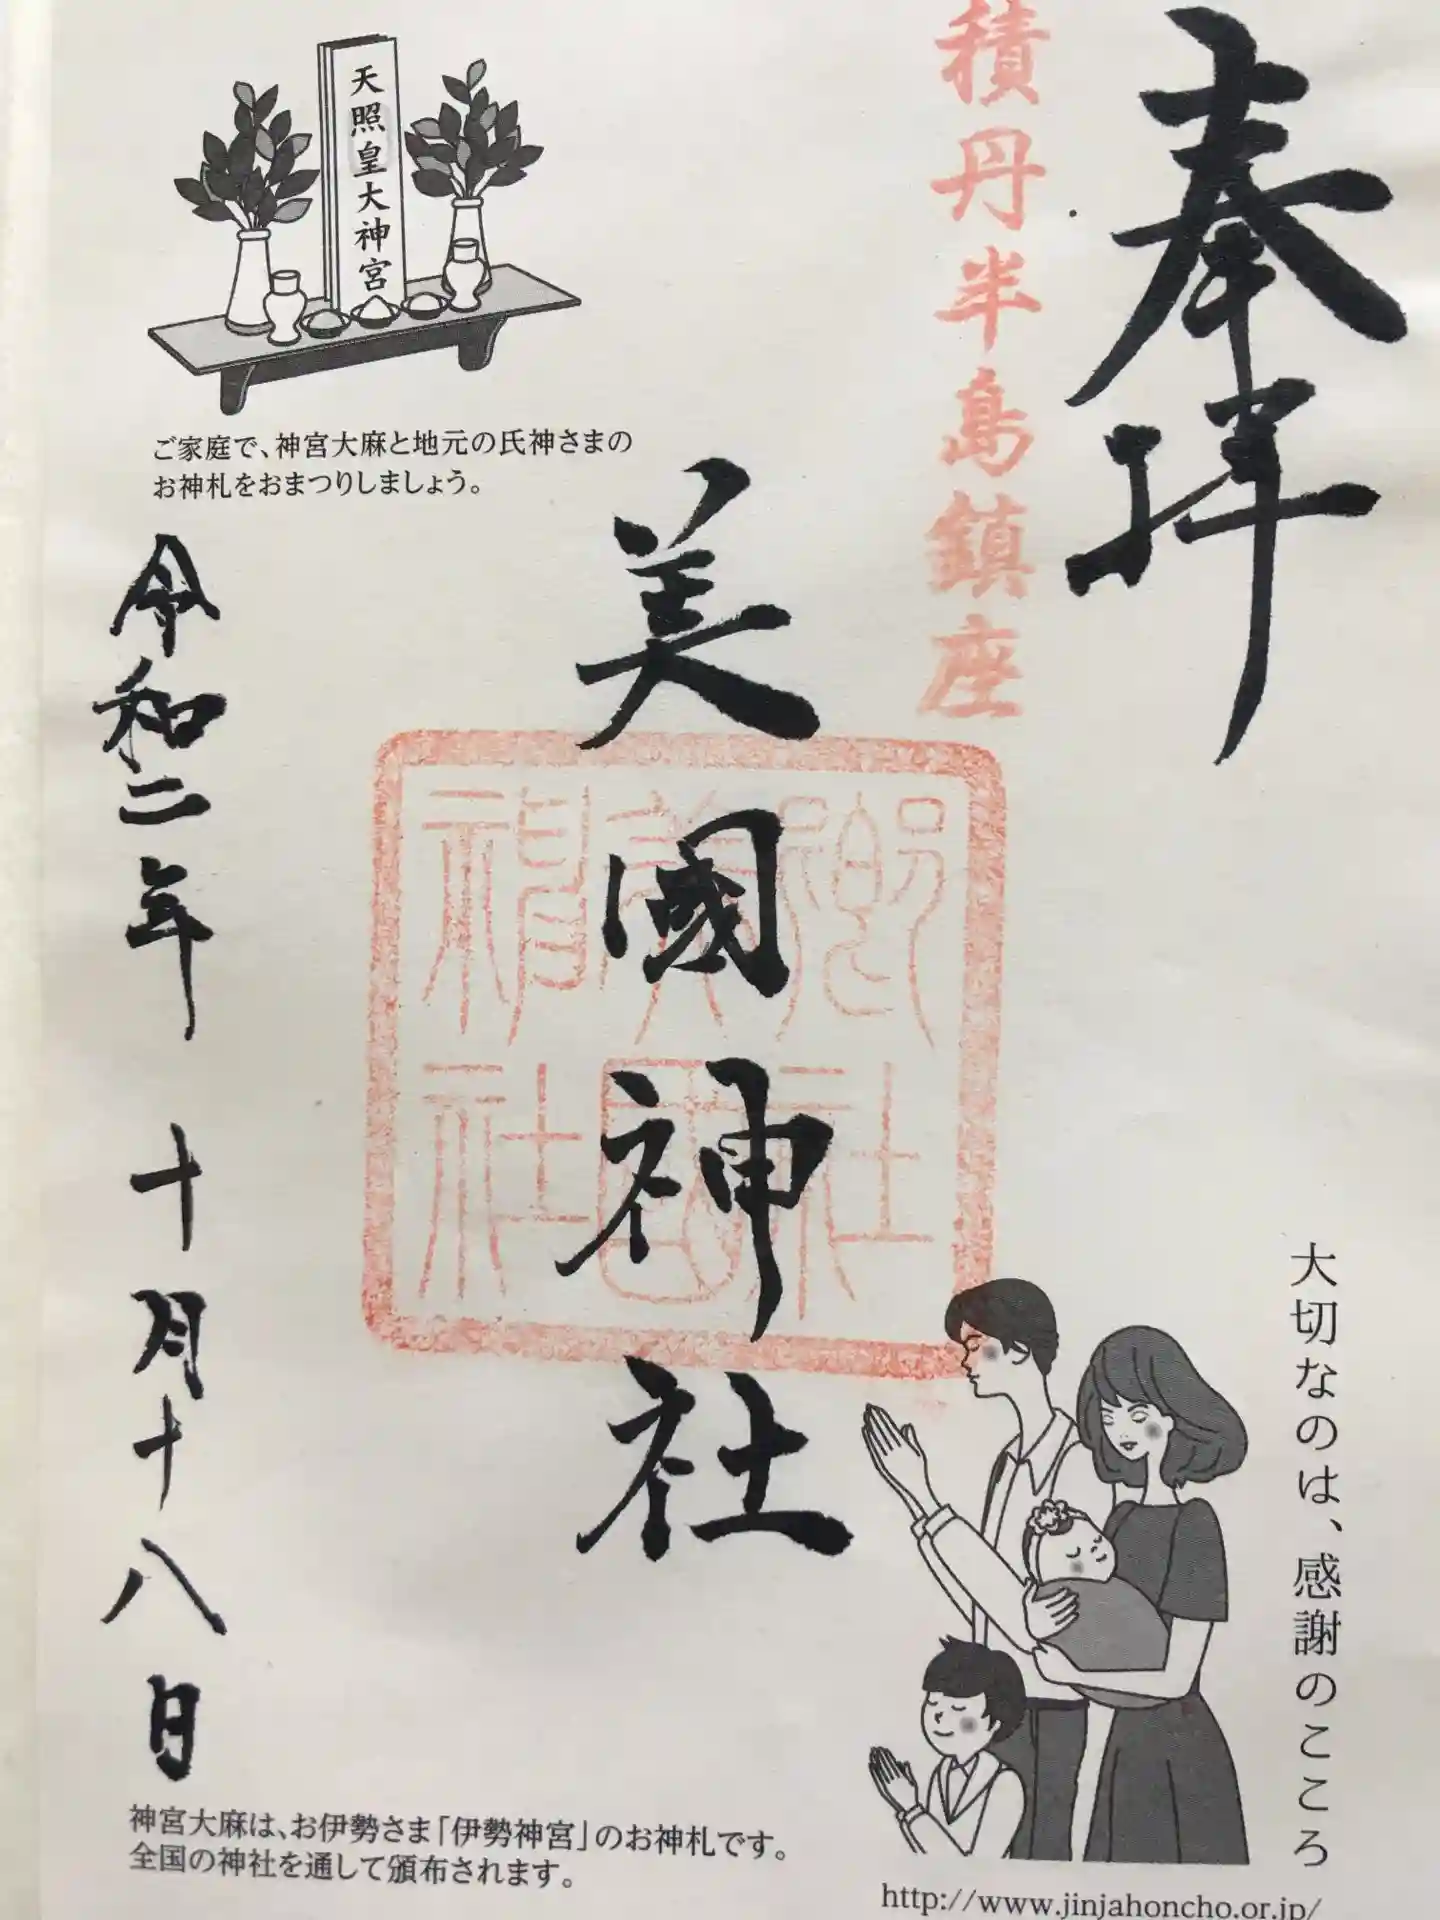 奉拝
積丹半島鎮座
美國神社
天照皇大神宮
ご家庭で、神宮大麻と地元の氏神さまの
お神札をおまつりしましょう。
令和二年 十月十八日
大切なのは、感謝のこころ
神宮大麻は、お伊勢さま「伊勢神宮」のお神札です。
全国の神社を通して頒布されます。
http://www.jinjahoncho.or.jp/